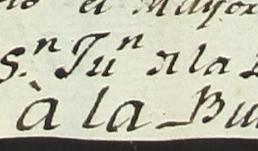 el Mayor
S.ⁿ Juⁿ a la
à la Bu